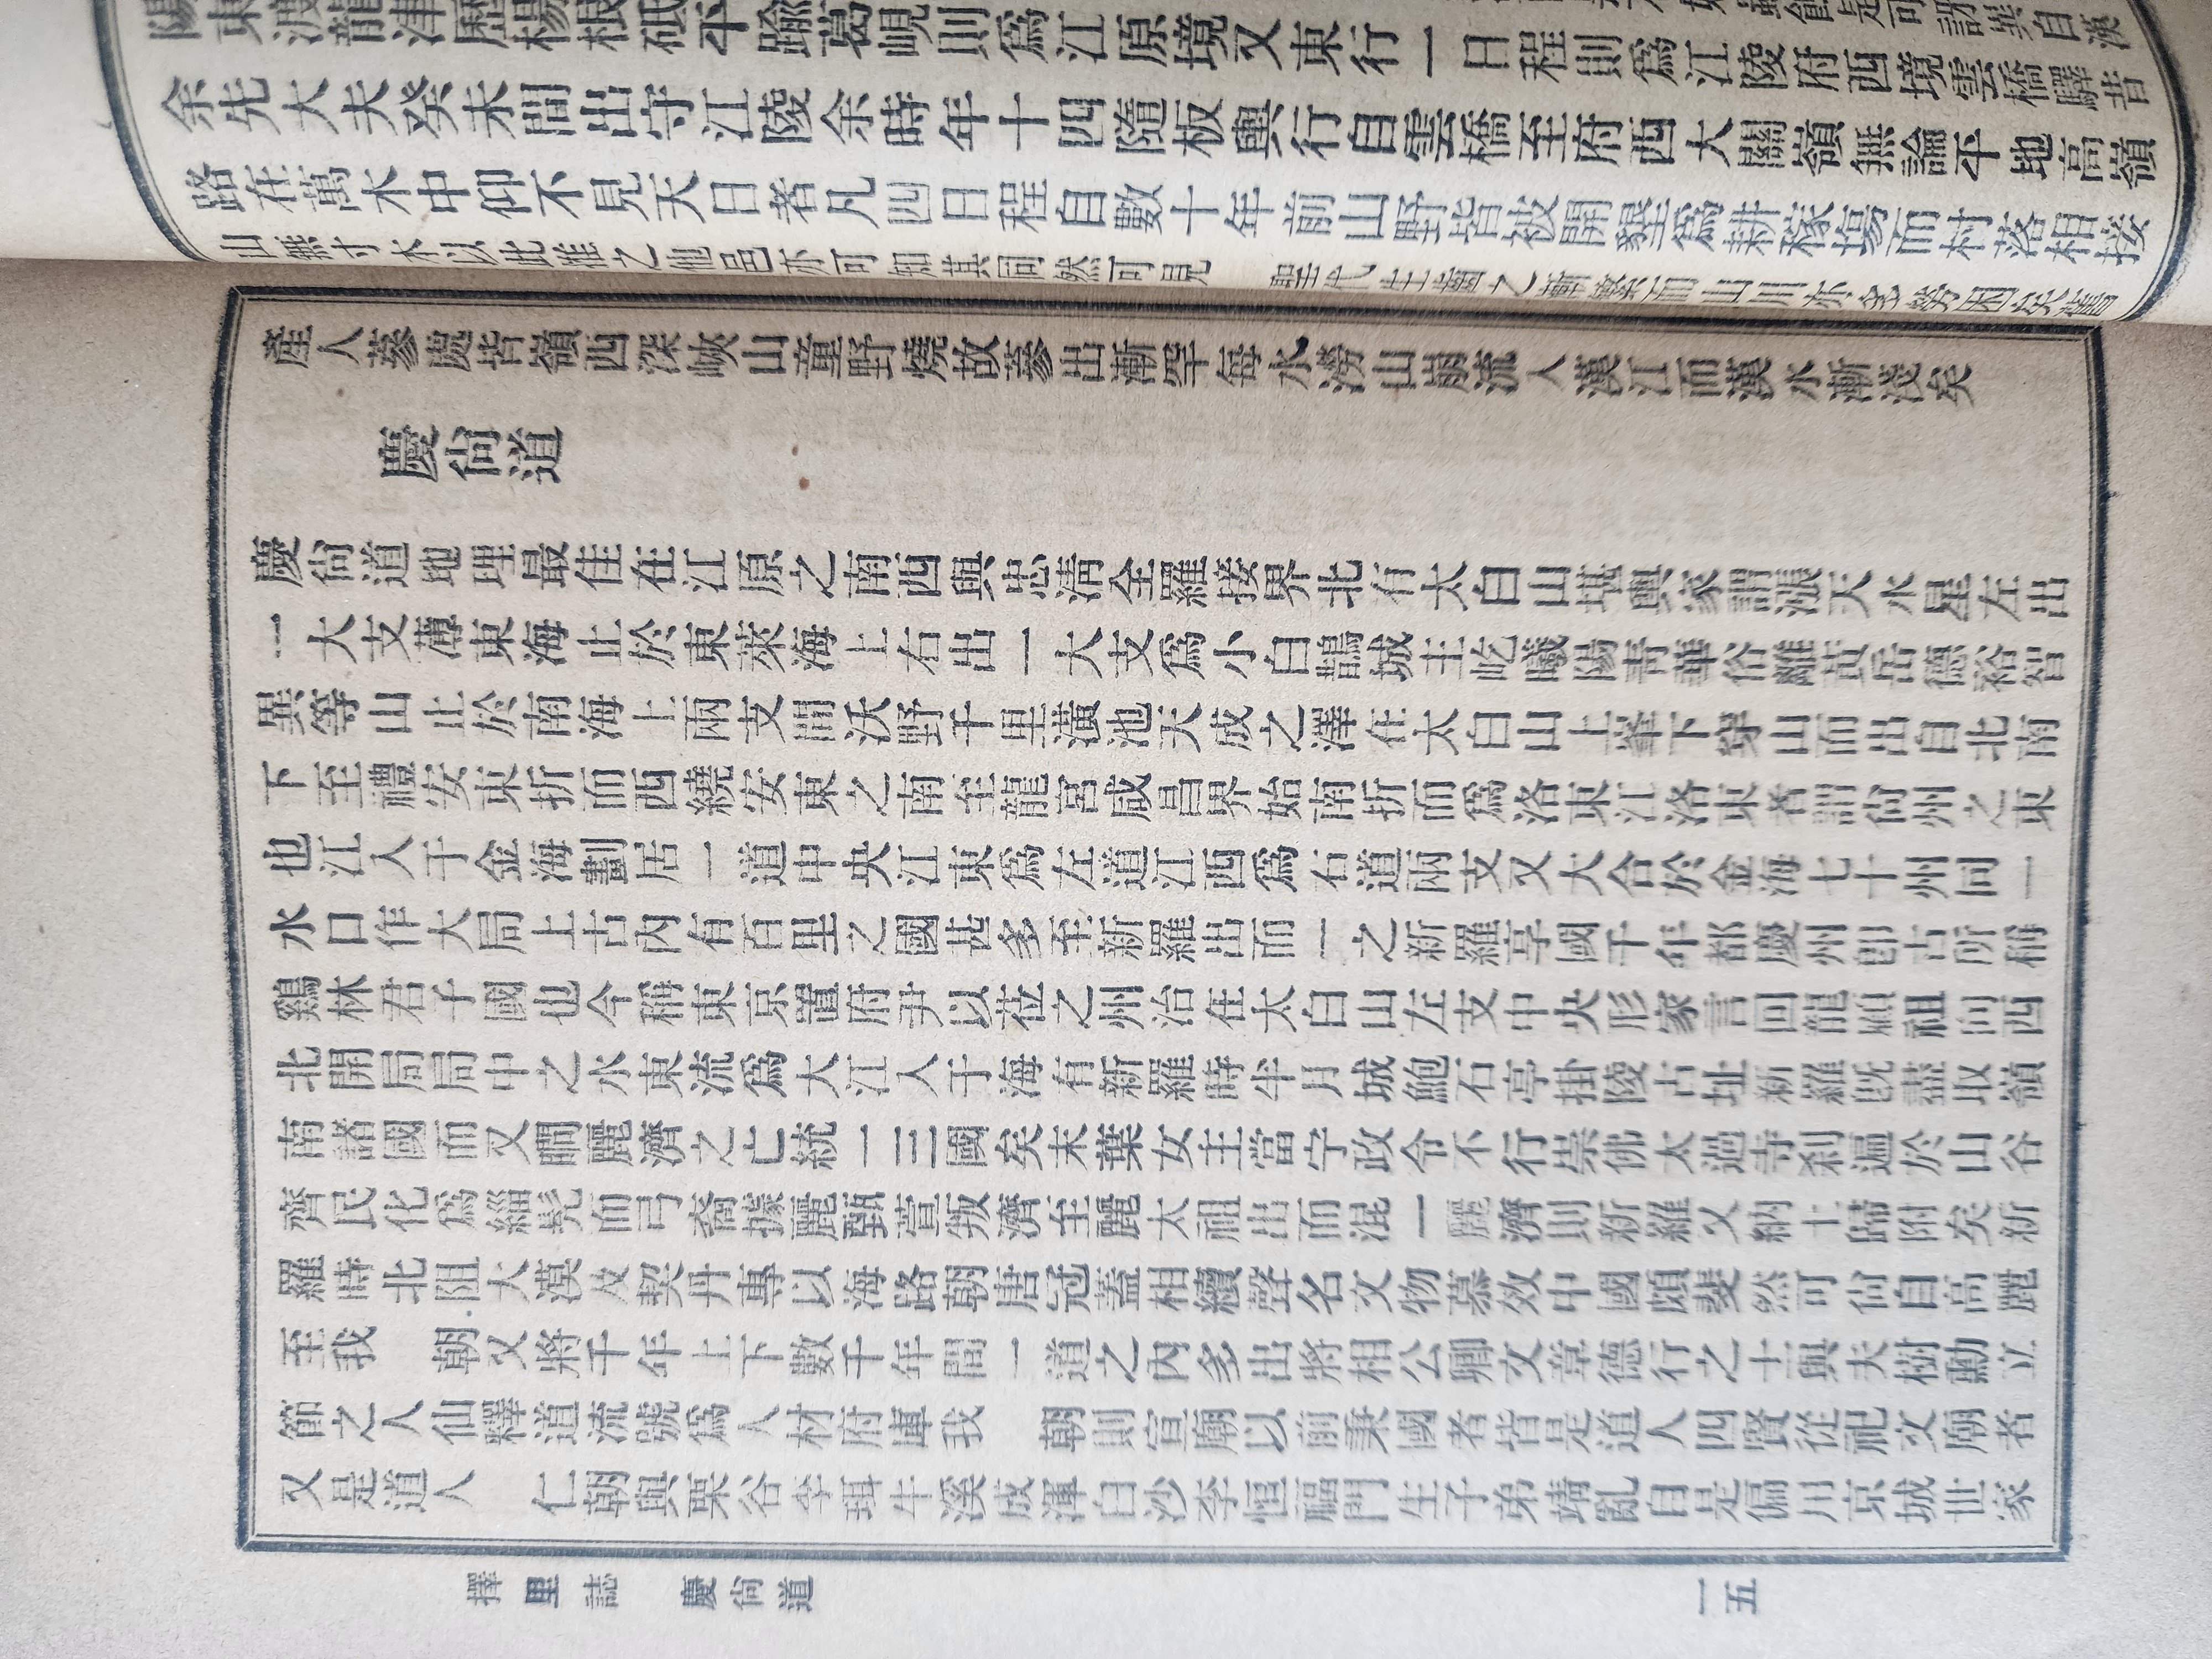 陽東渡龍津歷楊根砥平踰葛峴則爲江原境又東行一日程則爲江陵府西境雲橋驛昔
余先大夫癸未間出守江陵余時年十四隨板輿行自雲橋至府西大關嶺無論平地高嶺
路在萬木中仰不見天日者凡四日程自數十年前山野皆被開墾爲耕稼場而村落相接
山無寸木以此推之他邑亦可知其同然可見　聖代生齒之漸繁而山川亦多勞困矣舊
產人蔘處皆嶺西深峽山童野燒故蔘出漸罕每水潦山崩流入漢江而漢水漸淺矣
慶尙道
慶尙道地理最佳在江原之南西與忠淸全羅接界北有太白山堪輿家謂漲天水星左出
一大支薄東海止於東萊海上右出一大支爲小白鵲城主屹曦陽靑華俗離黃岳德裕智
異等山止於南海上兩支間沃野千里潢池天成之澤在太白山上峯下穿山而出自北南
下至禮安東折而西繞安東之南至龍宮咸昌界始南折而爲洛東江洛東者謂尙州之東
也江入于金海劃居一道中央江東爲左道江西爲右道兩支又大合於金海七十州同一
水口作大局上古內有百里之國甚多至新羅出而一之新羅享國千年都慶州卽古所稱
鷄林君子國也今稱東京置府尹以莅之州治在太白山左支中央形家言回龍顧祖向西
北開局局中之水東流爲大江入于海有新羅時半月城鮑石亭掛陵古址新羅旣盡取嶺
南諸國而又瞷麗濟之亡統一三國矣末葉女主當宁政令不行崇佛太過寺刹遍於山谷
齊民化爲緇髡而弓裔據麗甄萱叛濟至麗太祖出而混一麗濟則新羅又納土歸附矣新
羅時北阻大漠及契丹專以海路朝唐冠蓋相續聲名文物慕效中國頗斐然可尙自高麗
至我　朝又將千年上下數千年間一道之內多出將相公卿文章德行之士與夫樹勳立
節之人仙釋道流號爲人材府庫我　朝則宣廟以前秉國者皆是道人四賢從祀文廟者
又是道人　仁朝與栗谷李珥牛溪成渾白沙李恒福門生子弟靖亂自是偏用京城世家
擇里誌　慶尙道
一五